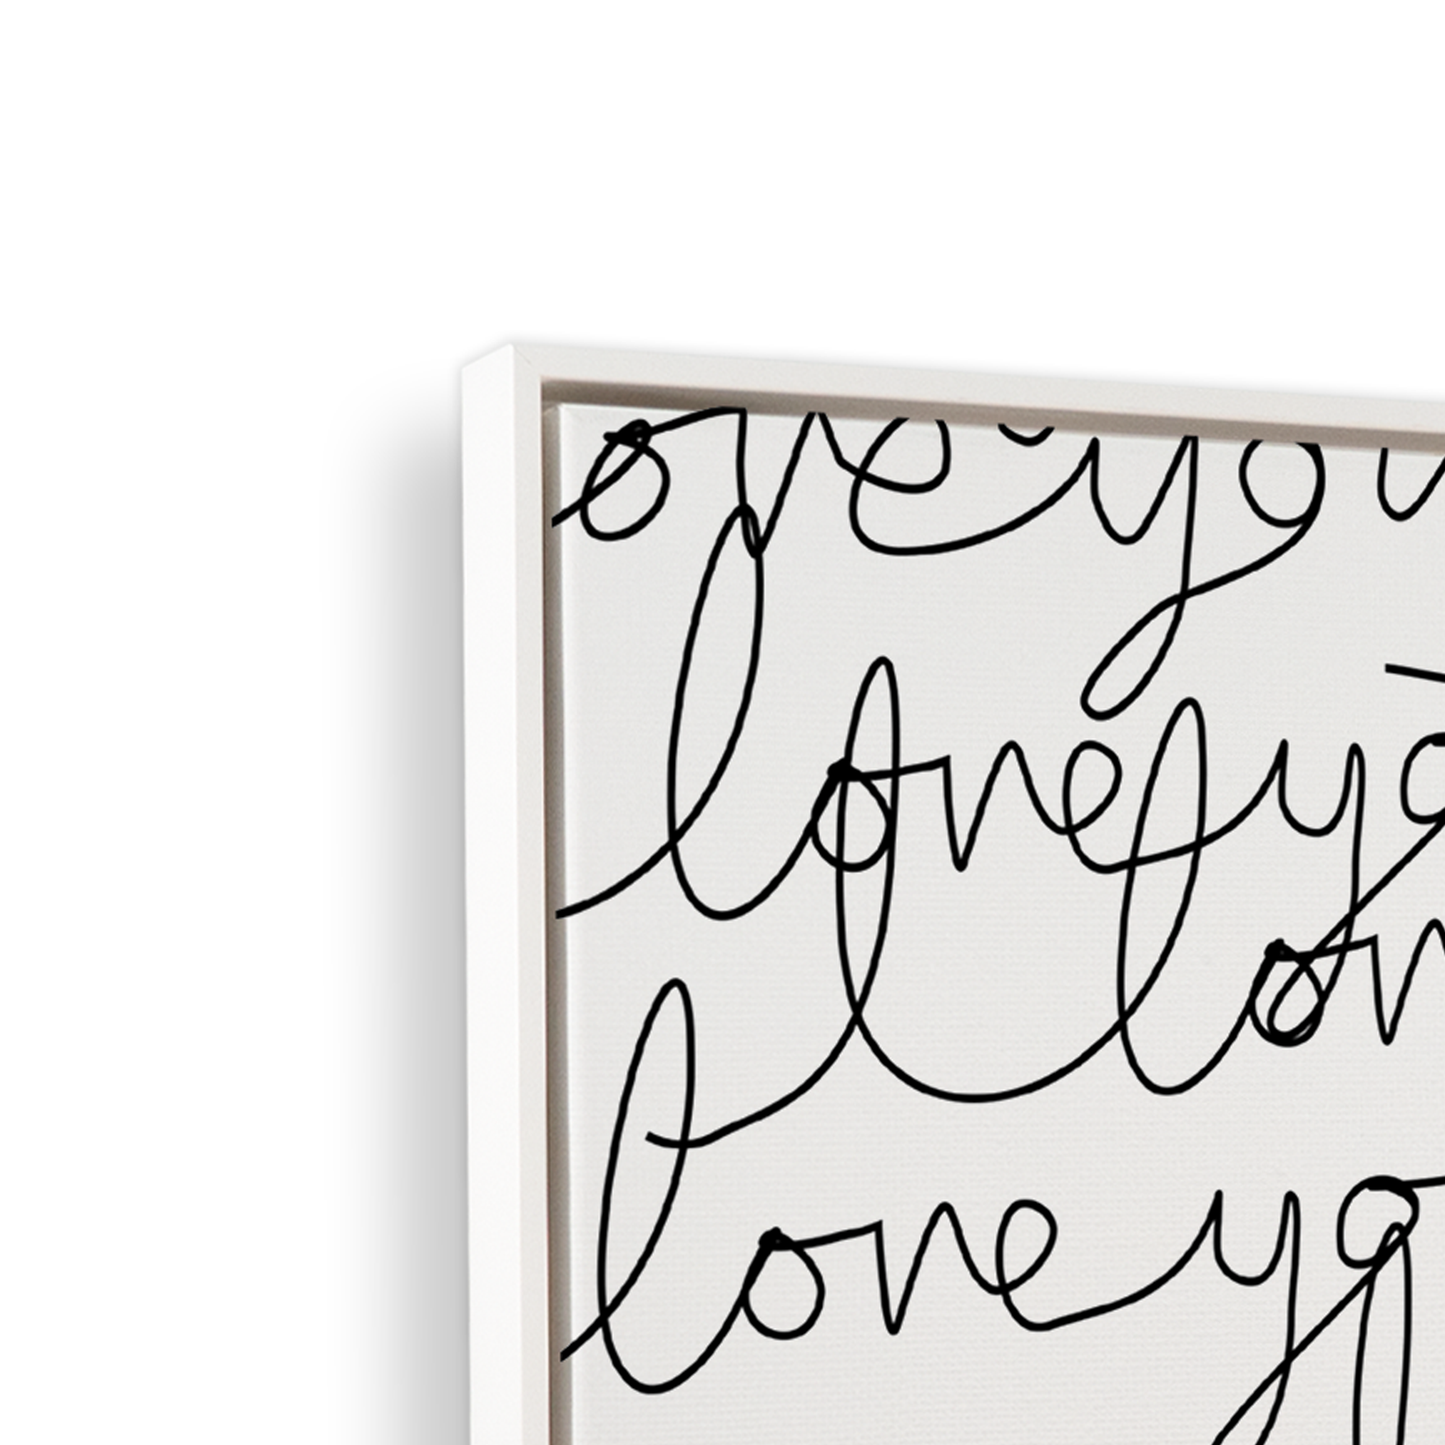 love you
love yo
lov
love yo